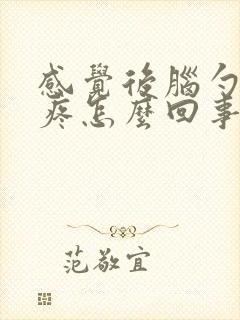 感覺後腦勺
疼怎麼回事
范敬宜